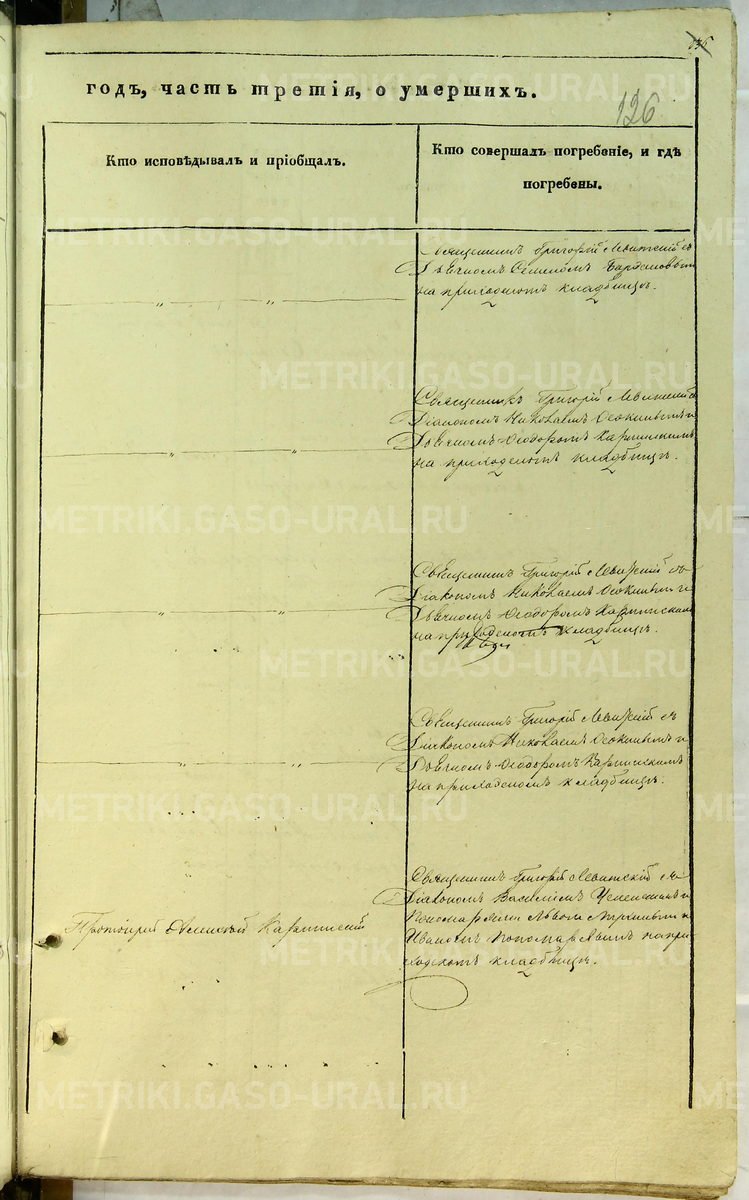 126
годъ, часть третія, о умершихъ.
Кто исповѣдывалъ и пріобщалъ.
Кто совершалъ погребеніе, и гдѣ
погребены.
Священникъ Григорій Левитскій съ
Дьячкомъ
на приходскомъ кладбищѣ.
Священникъ Григорій Левитскій съ
Діакономъ Николаемъ Осокинымъ и
Дьячкомъ Ѳеодоромъ Карпинскимъ
на приходскомъ кладбищѣ.
Священникъ Григорій Левитскій съ
Діакономъ Николаемъ Осокинымъ и
Дьячкомъ Ѳеодоромъ Карпинскимъ
на приходскомъ кладбищѣ.
Священникъ Григорій Левитскій съ
Діакономъ Николаемъ Осокинымъ и
Дьячкомъ Ѳеодоромъ Карпинскимъ
на приходскомъ кладбищѣ.
Священникъ Григорій Левитскій съ
Діакономъ Василіемъ Успенскимъ и
Протоіерей Алексій Карпинскій
Иваномъ Пономаревымъ на при
ходскомъ кладбищѣ.
METRIKI.GASO-URAL.RU